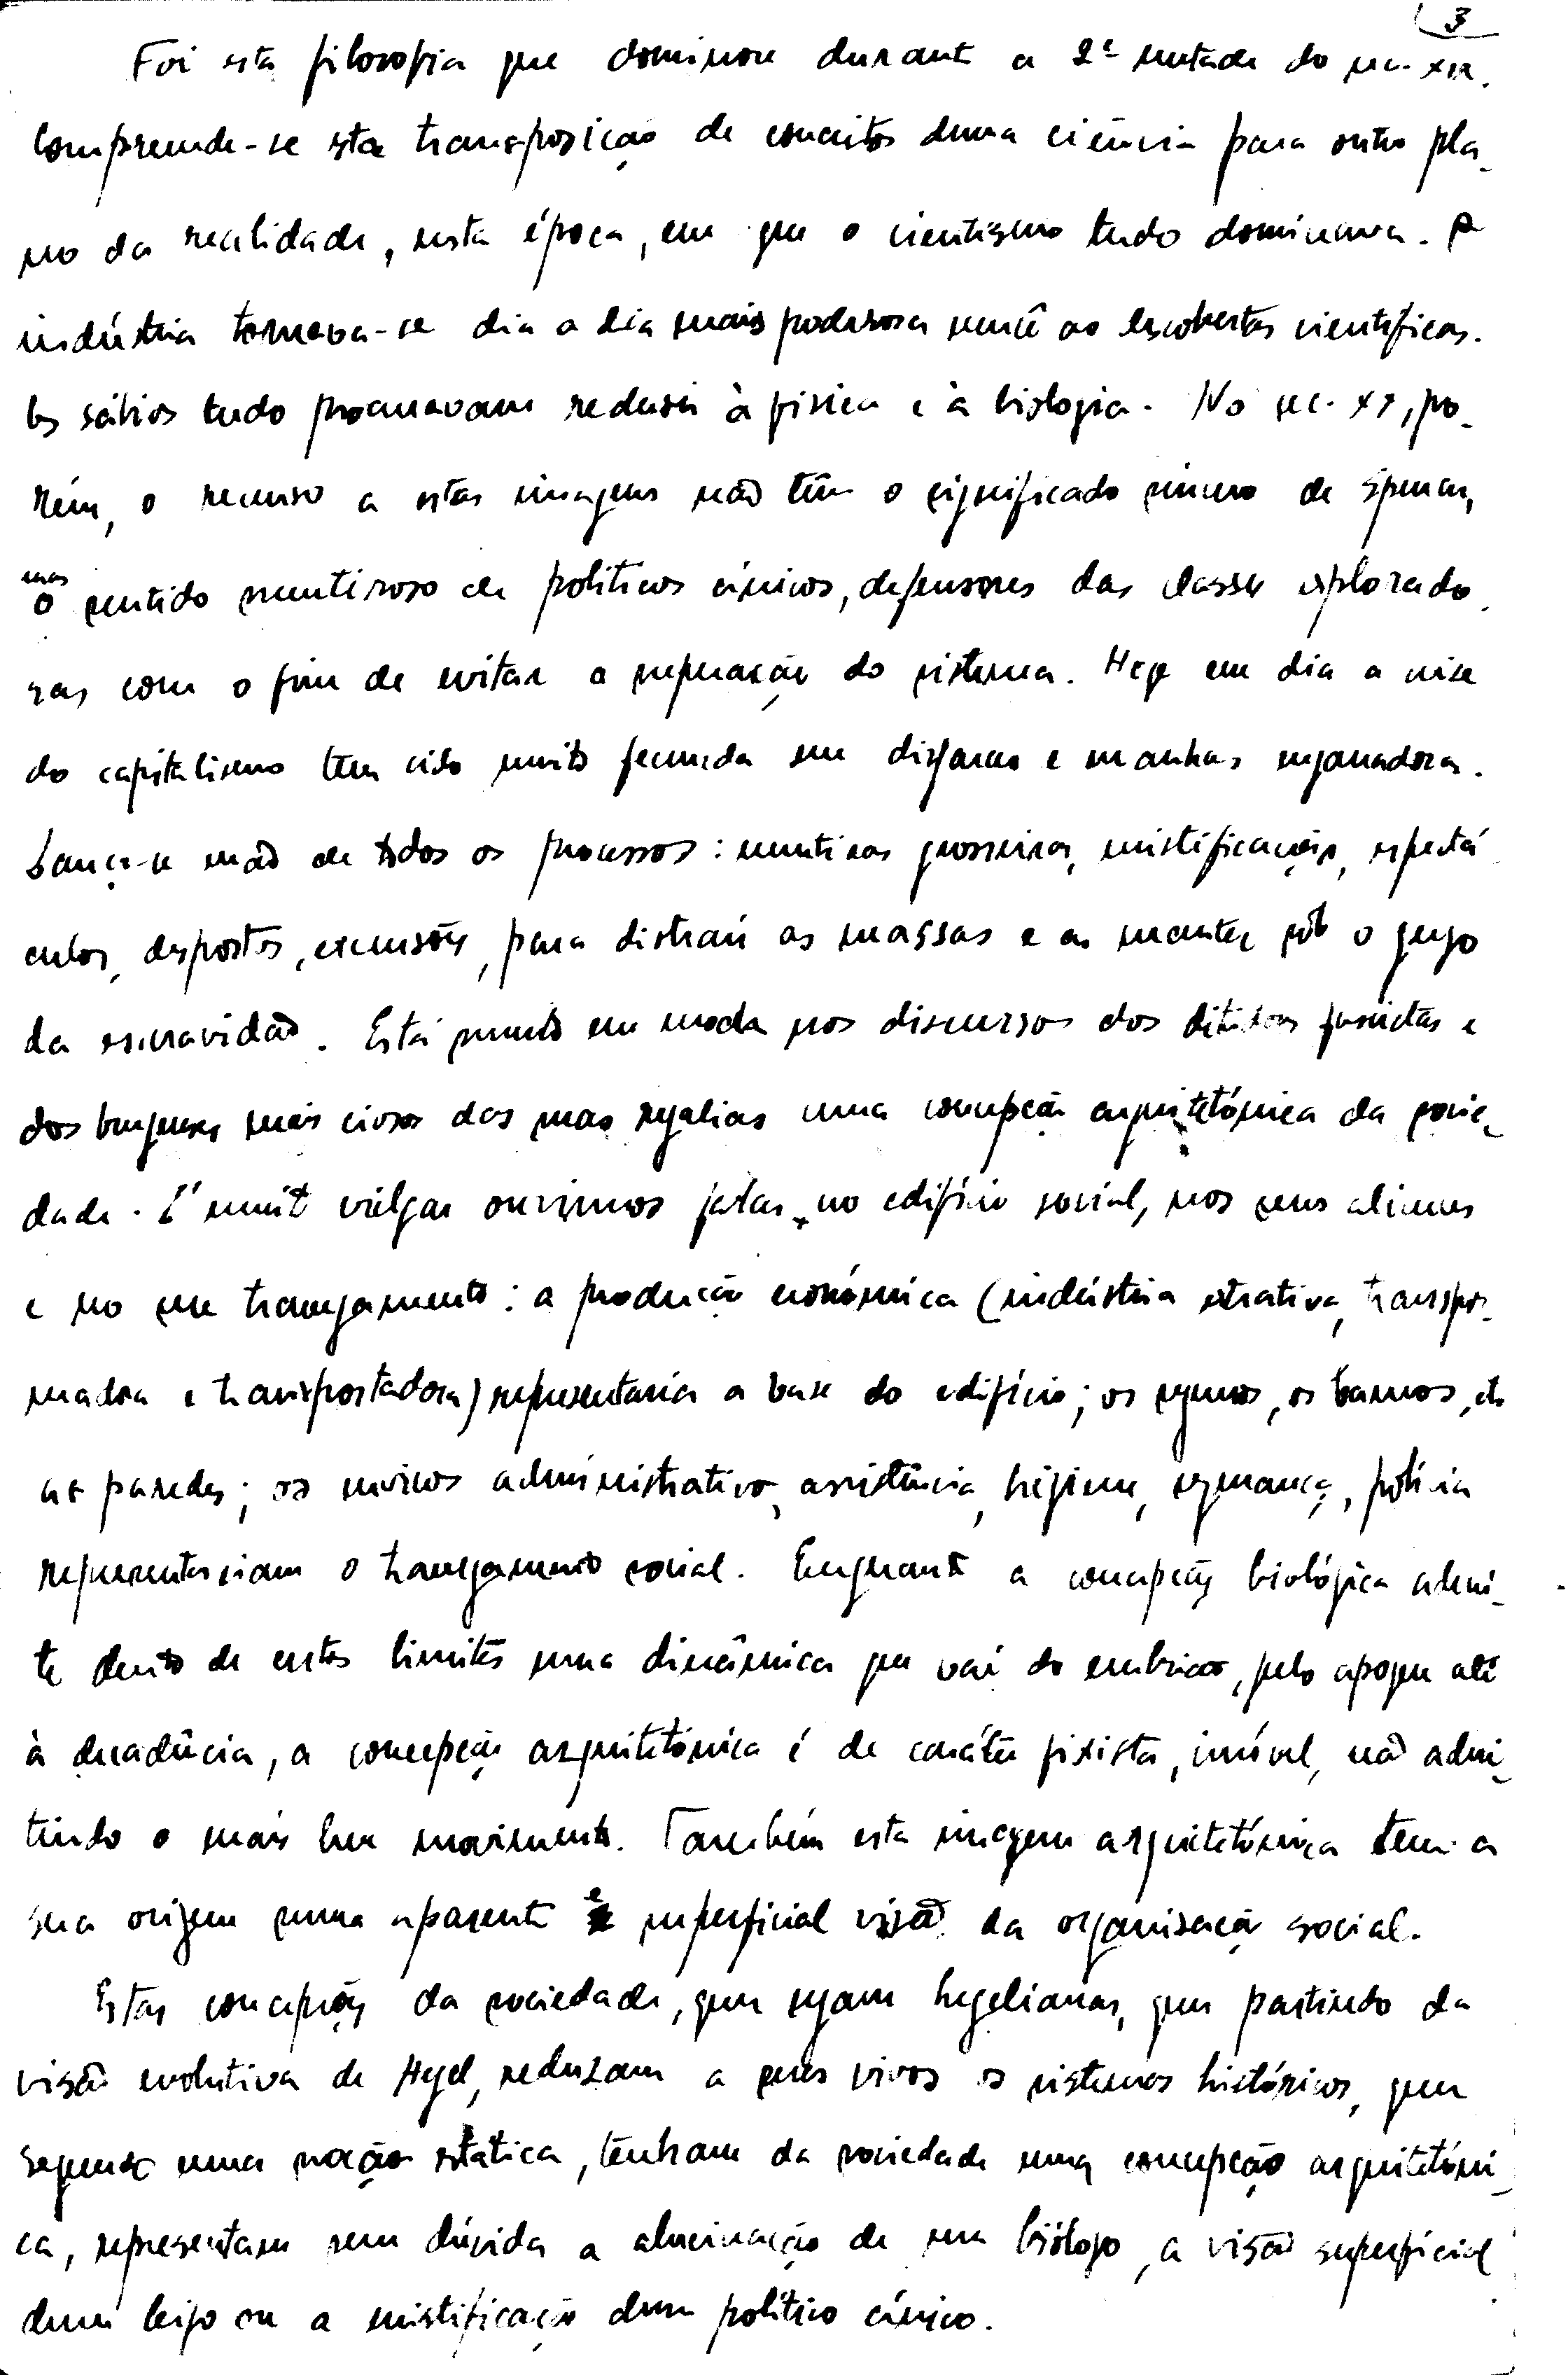 3
Foi esta filosofia que dominou durante a 2ª metade do sec. XIX.
Compreende-se esta transposição de conceitos duma ciência para outro pla-
no da realidade, nesta época, em que o cientismo tudo dominava. A
indústria tornava-se dia a dia mais poderosa mercê as descobertas cientificas.
Os sábios tudo procuravam reduzir à fisica e à biologia. No sec. XX, po-
rém, o recurso a estas imagens não têm o significado sincero de Spencer,
mas o sentido mentiroso de politicos cínicos, defensores das classes explorado-
ras com o fim de evitar a superação do sistema. Hoje em dia a crise
do capitalismo tem sido muito fecunda em disfarces e manhas enganadoras.
Lança-se mão de todos os processos: mentiras grosseiras, mistificações, espectá
culos, desportos, excursões, para distrair as massas e as manter sob o jugo
da escravidão. Está muito em moda nos discursos dos ditadores fascistas e
dos burgueses mais ciosos das suas regalias uma concepção arquitetónica da socie-
dade. É muito vulgar ouvirmos falar no edifício social, nos seus alicerces
e no seu travejamento: a produção económica (indústria extrativa, transfor-
madora e transportadora) representaria a base do edifício; os seguros, os bancos, etc
as paredes; os serviços administrativos, assistência, higiene, segurança, polícia
representariam o travejamento social. Enquanto a concepção biológica admi-
te dentro de certos limites uma dinâmica que vai do embrião, pelo apogeu até
à decadência, a concepção arquitetónica é de caráter fixista, imóvel, não admi-
tindo o mais leve movimento. Também esta imagem arquitetónica tem a
sua origem numa aparente e superficial visão da organização social.
Estas concepções da sociedade, quer sejam hegelianas, quer partindo da
visão evolutiva de Hegel, reduzam a seres vivos os sistemas históricos, quer
segundo uma noção estática, tenham da sociedade uma concepção arquitetóni-
ca, representam sem dúvida a alucinação de um biólogo, a visão superficial
dum leigo ou a mistificação dum político cínico.